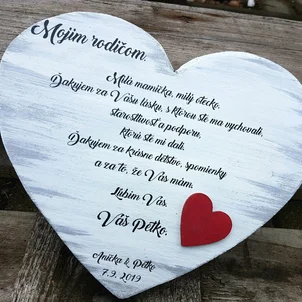 Mojim rodičom.
Milá mamička, milý otecko,
Ďakujem za Vašu lásku, s ktorou ste ma vychovali,
starostlivosť a podporu,
ktorú ste mi dali.
Ďakujem za krásne detstvo, spomienky
a za to, že Vás mám.
Ľúbim Vás.
Váš Peťko.
Anička & Peťko
7.9.2019